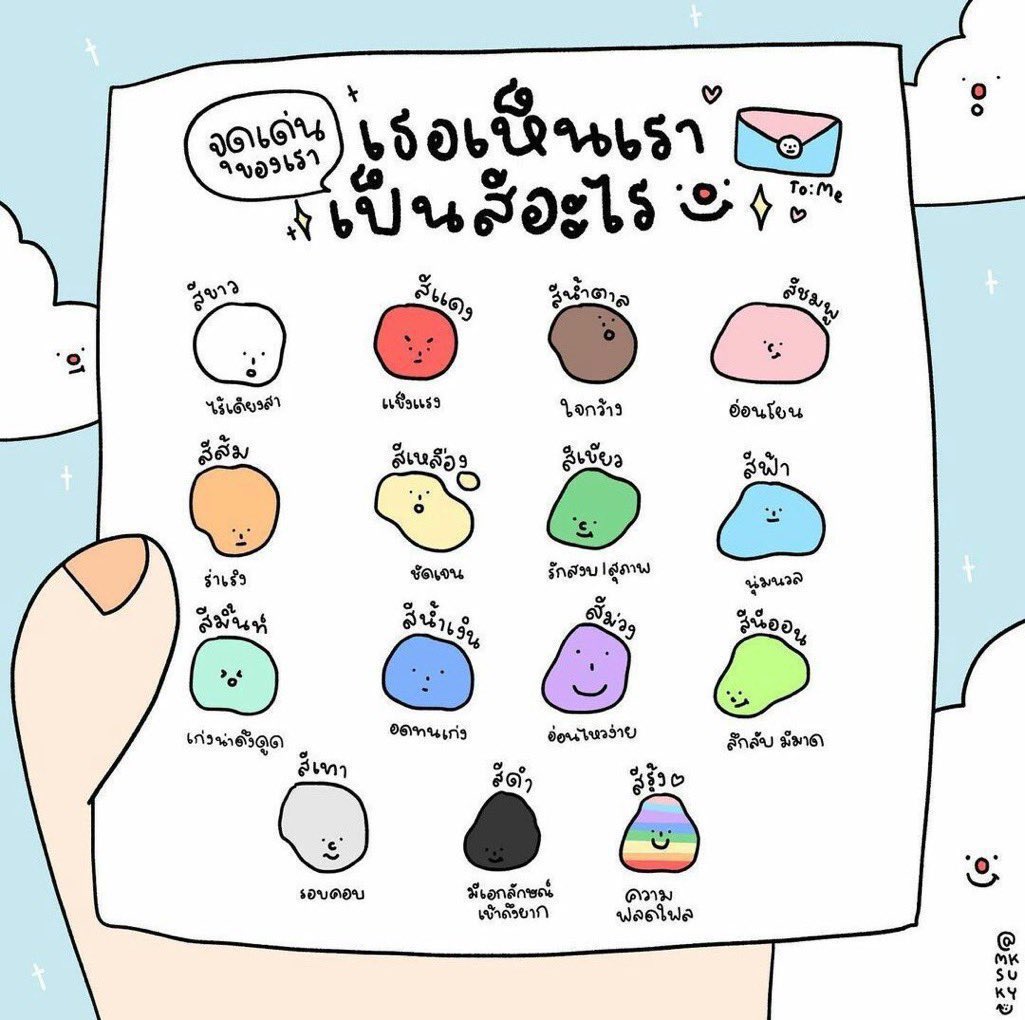 จุดเด่น
ของเรา
เธอเห็นเรา
เป็นสีอะไร
To: Me
สีขาว
สีแดง
สีน้ำตาล
สีชมพู
ไร้เดียงสา
แข็งแรง
ใจกว้าง
อ่อนโยน
สีส้ม
สีเหลือง
สีเขียว
สีฟ้า
ร่าเริง
ชัดเจน
รักสงบ/สุภาพ
นุ่มนวล
สีมิ้นท์
สีน้ำเงิน
สีม่วง
สีนีออน
เก่งน่าดึงดูด
อดทนเก่ง
อ่อนไหวง่าย
ลึกลับ มีมาด
สีเทา
สีดำ
สีรุ้ง
รอบคอบ
มีเอกลักษณ์
เข้าถึงยาก
ความ
ฟลดใฟล
@MKSUKY